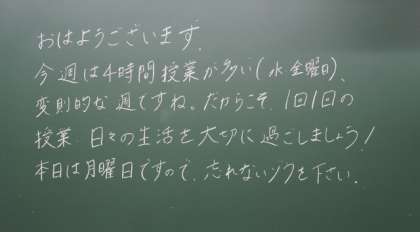 おはようございます。
今週は4時間授業が多い(水金曜日)、
変則的な週ですね。だからこそ、1回1回の
授業、日々の生活を大切に過ごしましょう!
本日は月曜日ですので、忘れないソウを下さい。